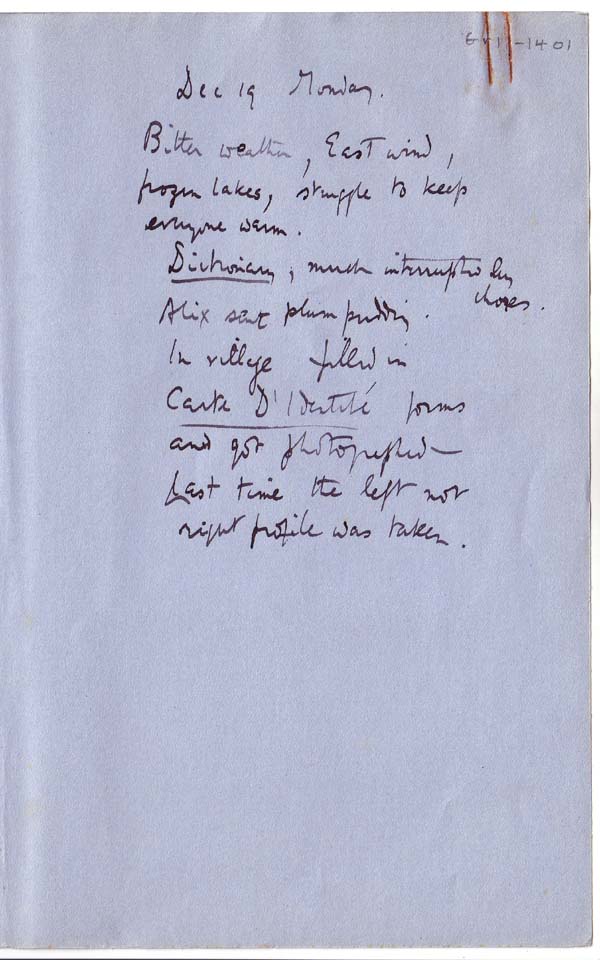 Dec 19 Monday.
Bitter weather, East wind,
frozen lakes, struggle to keep
everyone warm.
Dictionary, much interrupted by
chores.
Alix sent plum pudding.
In village filled in
Carte D'Identité forms
and got photographed—
Last time the left not
right profile was taken.